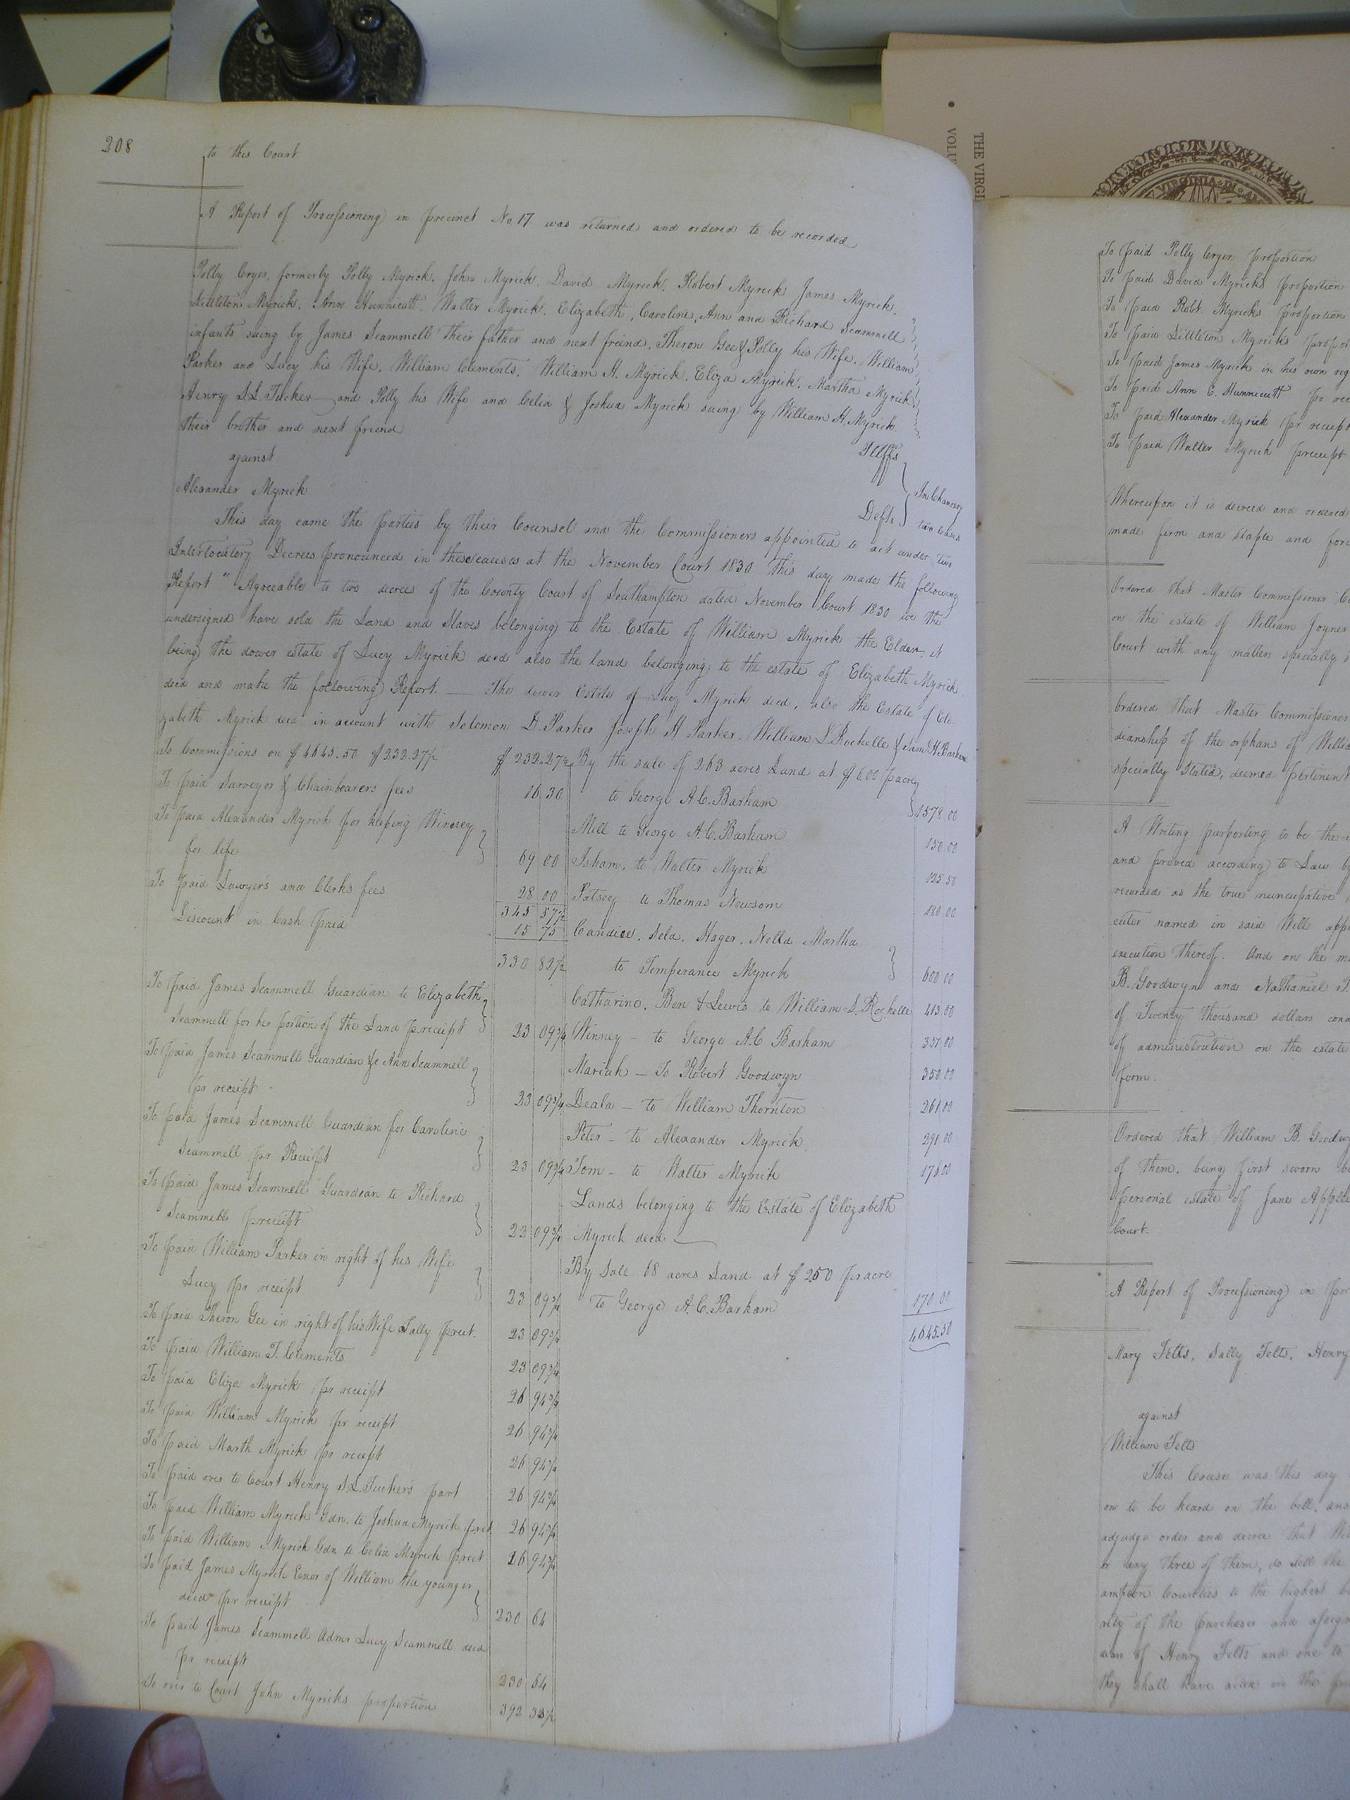 208
to this Court
A Report of Processioning in precinct No 17 was returned and ordered to be recorded
Polly Cryer, formerly Polly Myrick, John Myrick, David Myrick, Robert Myrick James Myrick,
Littleton Myrick, Ann Hunnicutt, Walter Myrick, Elizabeth, Caroline, Ann and Richard Scammell
infants suing by James Scammell their father and next freind, Theron Gee & Polly his Wife, William
Parker and Lucy his Wife, William Clements, William H. Myrick, Eliza Myrick, Martha Myrick
Henry S L Tucker and Polly his Wife and Celia & Joshua Myrick suing by William H. Myrick
their brother and next friend
Pltffs
against
In Chancery
Alexander Myrick
Deft.
two causes
This day came the parties by their Counsel and the Commissioners appointed to act under two
Interlocatory Decrees pronounced in these causes at the November Court 1830 this day made the following
Report " Agreeable to two decree of the County Court of Southampton dated November Court 1830 we the
undersigned have sold the Land and Slaves belonging to the Estate of William Myrick the Elder, it
being the dower estate of Lucy Myrick decd also the land belonging to the estate of Elizabeth Myrick
decd and make the following Report. — The dower Estate of Lucy Myrick decd, also the Estate of Eli-
zabeth Myrick decd in account with Solomon D Parker Joseph H Parker, William S. Rochelle & Saml H. Barham
To Commissions on $4645.50 $232.27½ $232.27½
To paid Surveyor & Chainbearers fees 16 30
To paid Alexander Myrick for keeping Winney
for life 69 00
To paid Lawyer's and Clerks fees 28 00
345 57½
Discount in Cash paid 15 75
330 82½
To paid James Scammell Guardian to Elizabeth
Scammell for her portion of the Land pr receipt 23 09¾
To paid James Scammell Guardian &c Ann Scammell
pr receipt 23 09¾
To paid James Scammell Guardian for Caroline
Scammell pr Receipt 23 09¾
To paid James Scammell Guardian to Richard
Scammell pr receipt 23 09¾
To paid William Parker in right of his Wife
Lucy pr receipt 23 09¾
To paid Theron Gee in right of his Wife Sally pr rect. 23 09¾
To paid William T. Clements 23 09¾
To paid Eliza Myrick pr receipt 26 94¾
To paid William Myrick pr receipt 26 94¾
To paid Marth Myrick pr receipt 26 94¾
To paid over to Court Henry S L Tucker's part 26 94¾
To paid William Myrick Gdn. to Joshua Myrick pr rect 26 94¾
To paid William Myrick Gdn to Celia Myrick pr rect 26 94¾
To paid James Myrick Exor of William the younger
decd pr receipt 230 64
To paid James Scammell Admr Lucy Scammell decd
pr receipt 230 64
To over to Court John Myricks proportion 392 33½
By the sale of 263 acres Land at $6.00 pacre
to George A. C. Barham 1578.00
Mill to George A. C. Barham 150.00
Isham, to Walter Myrick 125.50
Patsey to Thomas Newsom 180.00
Candice, Sela, Hager, Nella Martha
to Temperance Myrick 600.00
Catharine, Ben & Lewis to William S. Rochelle 413.00
Winney — to George A. C Barham 357.00
Mariah — To Robert Goodwyn 350.00
Deala — to William Thornton 261.00
Peter — to Alexander Myrick 291.00
Tom — to Walter Myrick 170.00
Lands belonging to the Estate of Elizabeth
Myrick decd
By Sale 68 acres Land at $2.50 pr acre
to George A. C. Barham 170.00
4645.50
THE VIRGI
VOLU
VIRGINIA
To paid Polly Cryer proportion
To paid David Myricks proportion
To paid Robt Myricks proportion
To paid Littleton Myricks propor
To paid James Myrick in his own rig
To paid Ann E. Hunnicutt pr rec
To paid Alexander Myrick pr receipt
To paid Walter Myrick pr receipt
Whereupon it is decreed and ordered
made firm and stable and fore
Ordered that Master Commissioner
on the estate of William Joyner
Court with any matters specially
Ordered that Master Commissioner
dianship of the orphan of Willis
specially stated, deemed pertinent
A Writing purporting to be the
and proved according to Law by
recorded as the true nuncupative
cutor named in said Will app
execution thereof. And on the m
B. Goodwyn and Nathaniel
of Twenty thousand dollars cond
of administration on the estate
form.
Ordered that William B. Goodw
of them, being first sworn be
personal estate of Jane Apple
Court.
A Report of Processioning in pr
Mary Felts, Sally Felts, Henry
against
William Felts
This Cause was this day
on to be heard on the bill, ans
adjudge order and decree that
or any three of them, do sell the
ampton Counties to the highest b
rity of the purchaser and assign
dian of Henry Felts and one to
they shall have acted in the pr